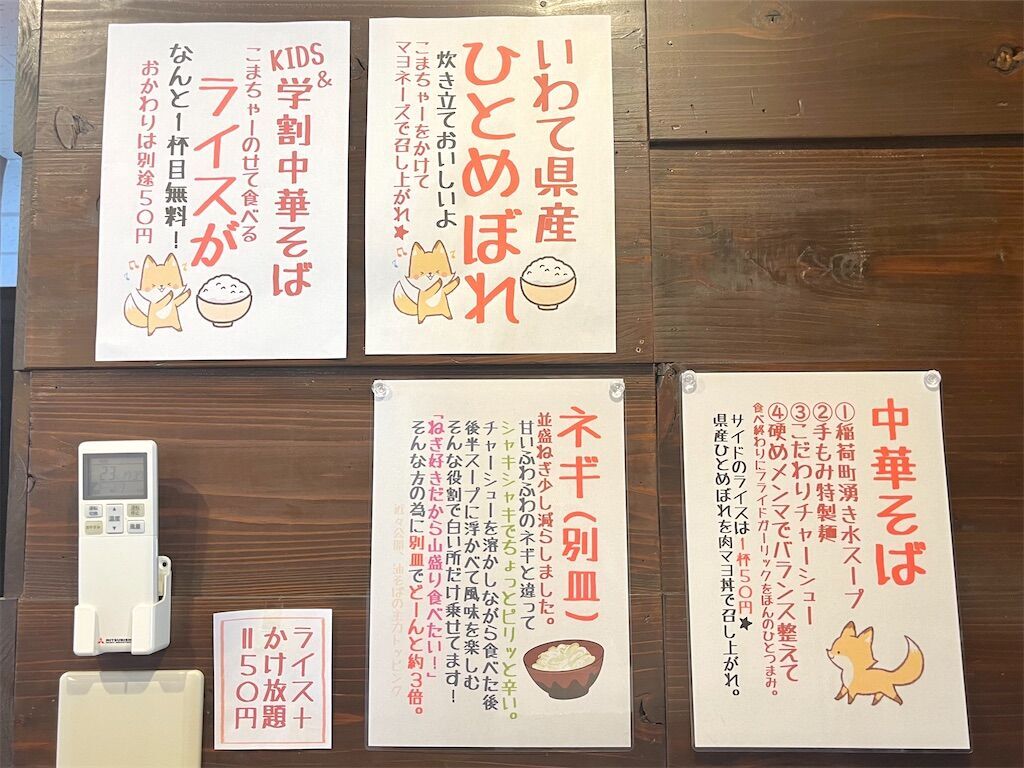 いわて県産
ひとめぼれ
炊き立ておいしいよ
こまちゃーをかけて
マヨネーズで召し上がれ★
KIDS&
学割中華そば
こまちゃーのせて食べる
ライスが
なんと1杯目無料！
おかわりは別途50円
中華そば
①稲荷町湧き水スープ
②手もみ特製麺
③こだわりチャーシュー
④硬めメンマでバランス整えて
食べ終わりにフライドガーリックをほんのひとつまみ。
サイドのライスは1杯50円★
県産ひとめぼれを肉マヨ丼で召し上がれ。
ネギ(別皿)
並盛ねぎ少し減らしました。
甘いふわふわのネギと違って
シャキシャキでちょっとピリッと辛い。
チャーシューを溶かしながら食べた後
後半スープに浮かべて風味を楽しむ
そんな役割で白い所だけ乗せてます！
「ねぎ好きだから山盛り食べたい！」
そんな方の為に別皿でどーんと約3倍。
近々公開、油そばの主力トッピング
ライス+
かけ放題
=50円
MITSUBISHI